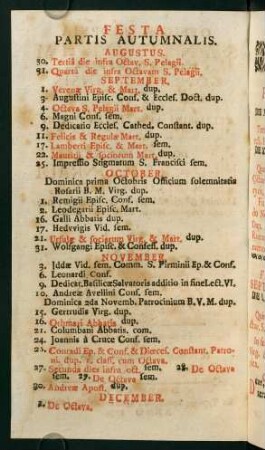 FESTA
PARTIS AUTUMNALIS.
AUGUSTUS.
30. Tertiâ die infra Octav. S. Pelagii.
31. Quartâ die infra Octavam S. Pelagii.
SEPTEMBER.
1. Verenæ Virg. & Mart. dup.
3. Augustini Episc. Conf. & Eccles. Doct. dup.
4. Octava S. Pelagii Mart. dup.
6. Magni Conf. sem.
9. Dedicatio Eccles. Cathed. Constant. dup.
11. Felicis & Regulæ Mart. dup.
17. Lamberti Episc. & Mart. sem.
22. Mauritii & Sociorum Mart. dup.
25. Impressio Stigmatum S. Francisci sem.
OCTOBER.
Dominica prima Octobris Officium solemnitatis
Rosarii B. M. Virg. dup.
1. Remigii Episc. Conf. sem.
2. Leodegarii Episc. Mart.
16. Galli Abbatis dup.
17. Hedvvigis Vid. sem.
21. Ursulæ & sociarum Virg. & Mart. dup.
31. Wolfgangi Episc. & Confess. dup.
NOVEMBER.
3. Iddæ Vid. sem. Comm. S. Pirminii Ep. & Conf.
6. Leonardi Conf.
9. Dedicat. Basilicæ Salvatoris additio in fine Lect. VI.
10. Andreæ Avellini Conf. sem.
Dominica 2da Novemb. Patrocinium B. V. M. dup.
15. Gertrudis Virg. dup.
16. Othmari Abbatis dup.
21. Columbani Abbatis. com.
24. Joannis à Cruce Conf. sem.
26. Conradi Ep. & Conf. & Diœces. Constant. Patro-
ni. dup. I. class. cum Octava.
27. Secunda dies infra oct. sem. 28. De Octava
sem. 29. De Octava sem.
30. Andreæ Apost. dup.
DECEMBER.
2. De Octava.